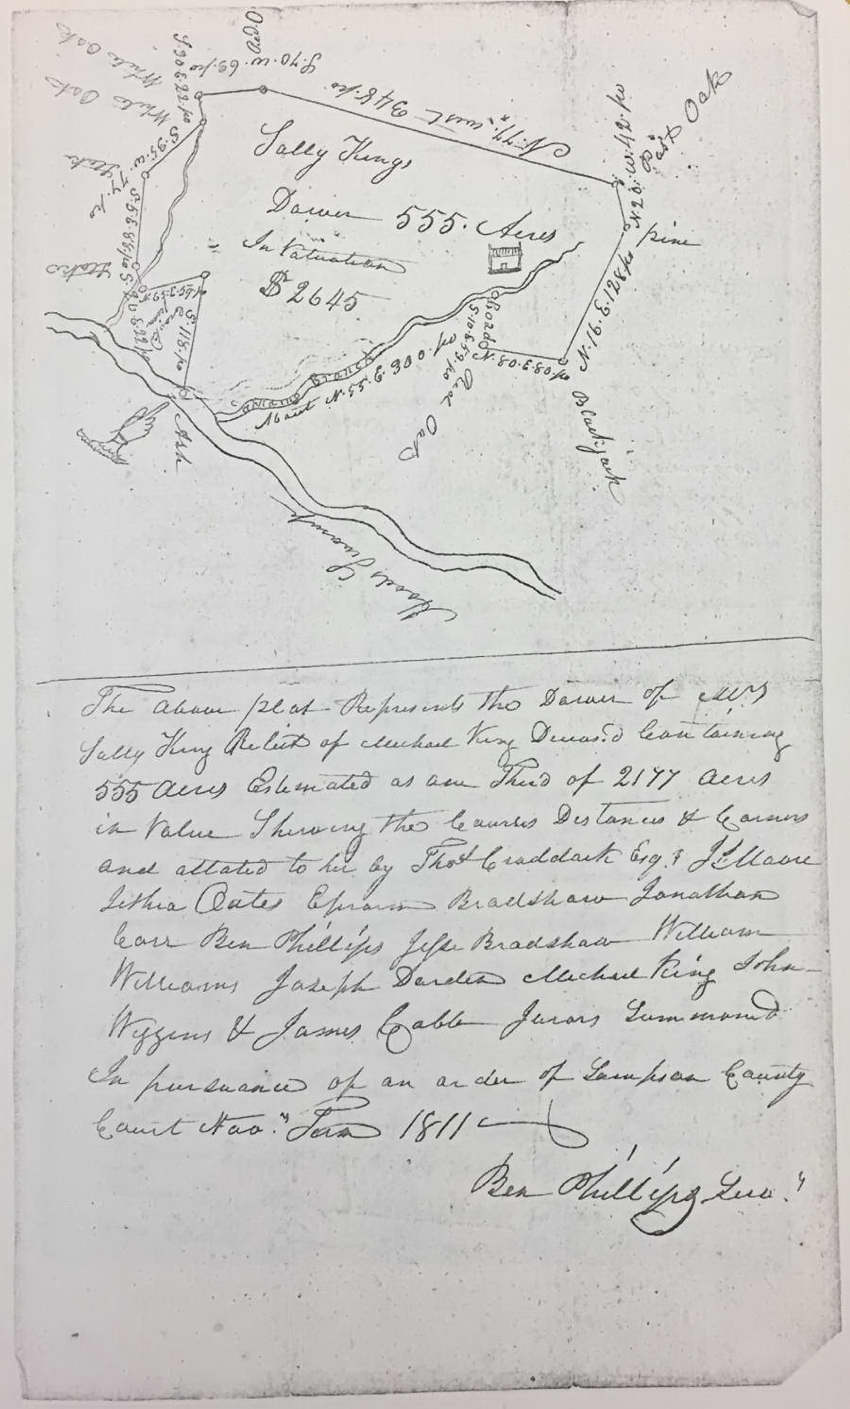 O.Oo
White Oak
White Oak
S. 20 E. 22 po
S. 70. W. 69. po
N. 77. West 348. po.
N 20. W. 42. po
Post Oak
pine
N. 16. E. 128 po
S. 35. W. 77. po
Stake
Stake
Sally Kings
Dower 555. Acres
In Valuation
$ 2645
S. 118. po
Ash
Branch
About N. 55. E. 300. po
S. 10. E. 59. po
N. 80. E. 80. po
Red Oak
Blackjack
Swamp
The above plat Represents the Dower of Mrs
Sally King Relict of Michael King Deceas.d Containing
555 Acres Estimated as one Third of 2177 Acres
in Value Shewing the Courses Distances & Corners
and allated to her by Thos Craddock Esq.r Js. Moore
Jethro Oates Ephraim Bradshaw Jonathan
Carr Ben Phillips Jesse Bradshaw William
Williams Joseph Darden Michael King John
Wiggins & James Cobb Jurors Summon.d
In pursuance of an order of Sampson County
Court Nov." Term 1811
Ben Phillips Surv."